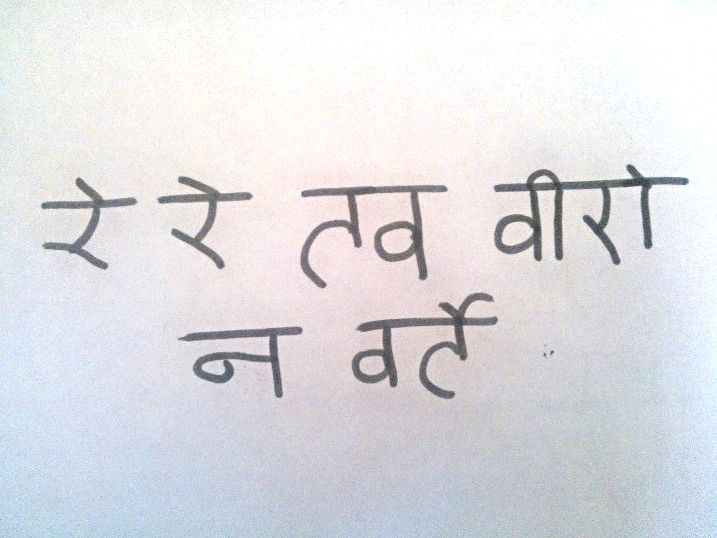 रे रे तव वीरो
न वर्ते